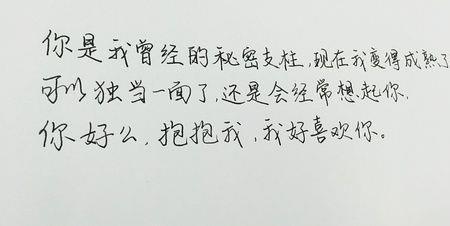 你是我曾经的秘密支柱,现在我变得成熟了
可以独当一面了,还是会经常想起你.
你好么,抱抱我,我好喜欢你。